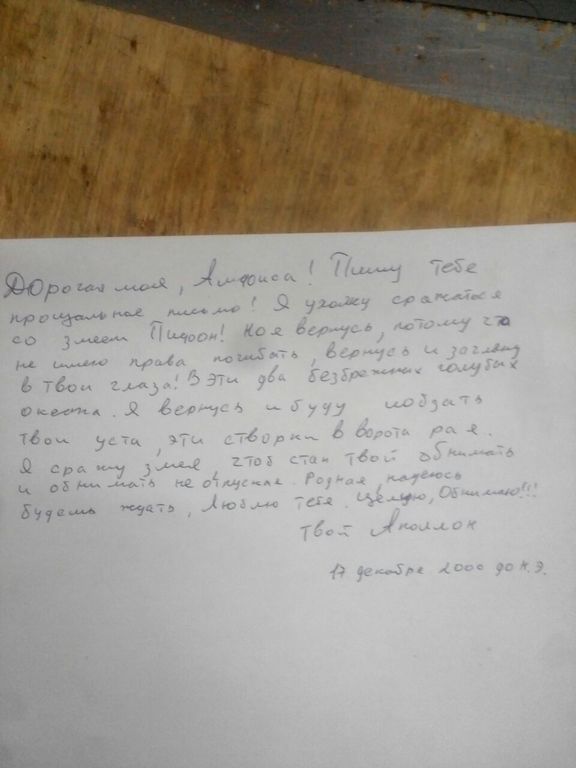 Дорогая моя, Амфиса! Пишу тебе
прощальное письмо! Я ухожу сражаться
со змеем Пифон! Но я вернусь, потому что
не имею права погибать, вернусь и загляну
в твои глаза! В эти два безбрежных голубых
океана. Я вернусь и буду лобзать
твои уста, эти створки в ворота рая.
Я сражу змея, чтоб стан твой обнимать
и обнимать не отпуская. Родная, надеюсь
будешь ждать, Люблю тебя. Целую, Обнимаю!!!
твой Аполлон
17 декабря 2000 до н.э.